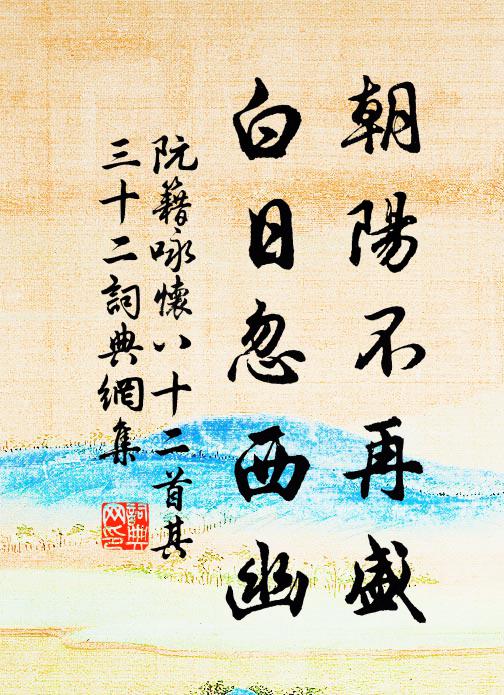 朝陽不再盛
白日忽西幽
阮籍咏懷八十二首其
三十二詞典網集
詞典
网印